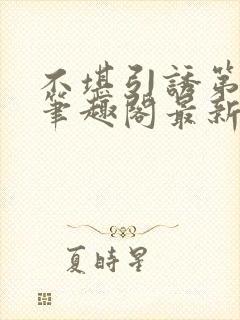 不堪引誘第
筆趣閣最新
夏時星